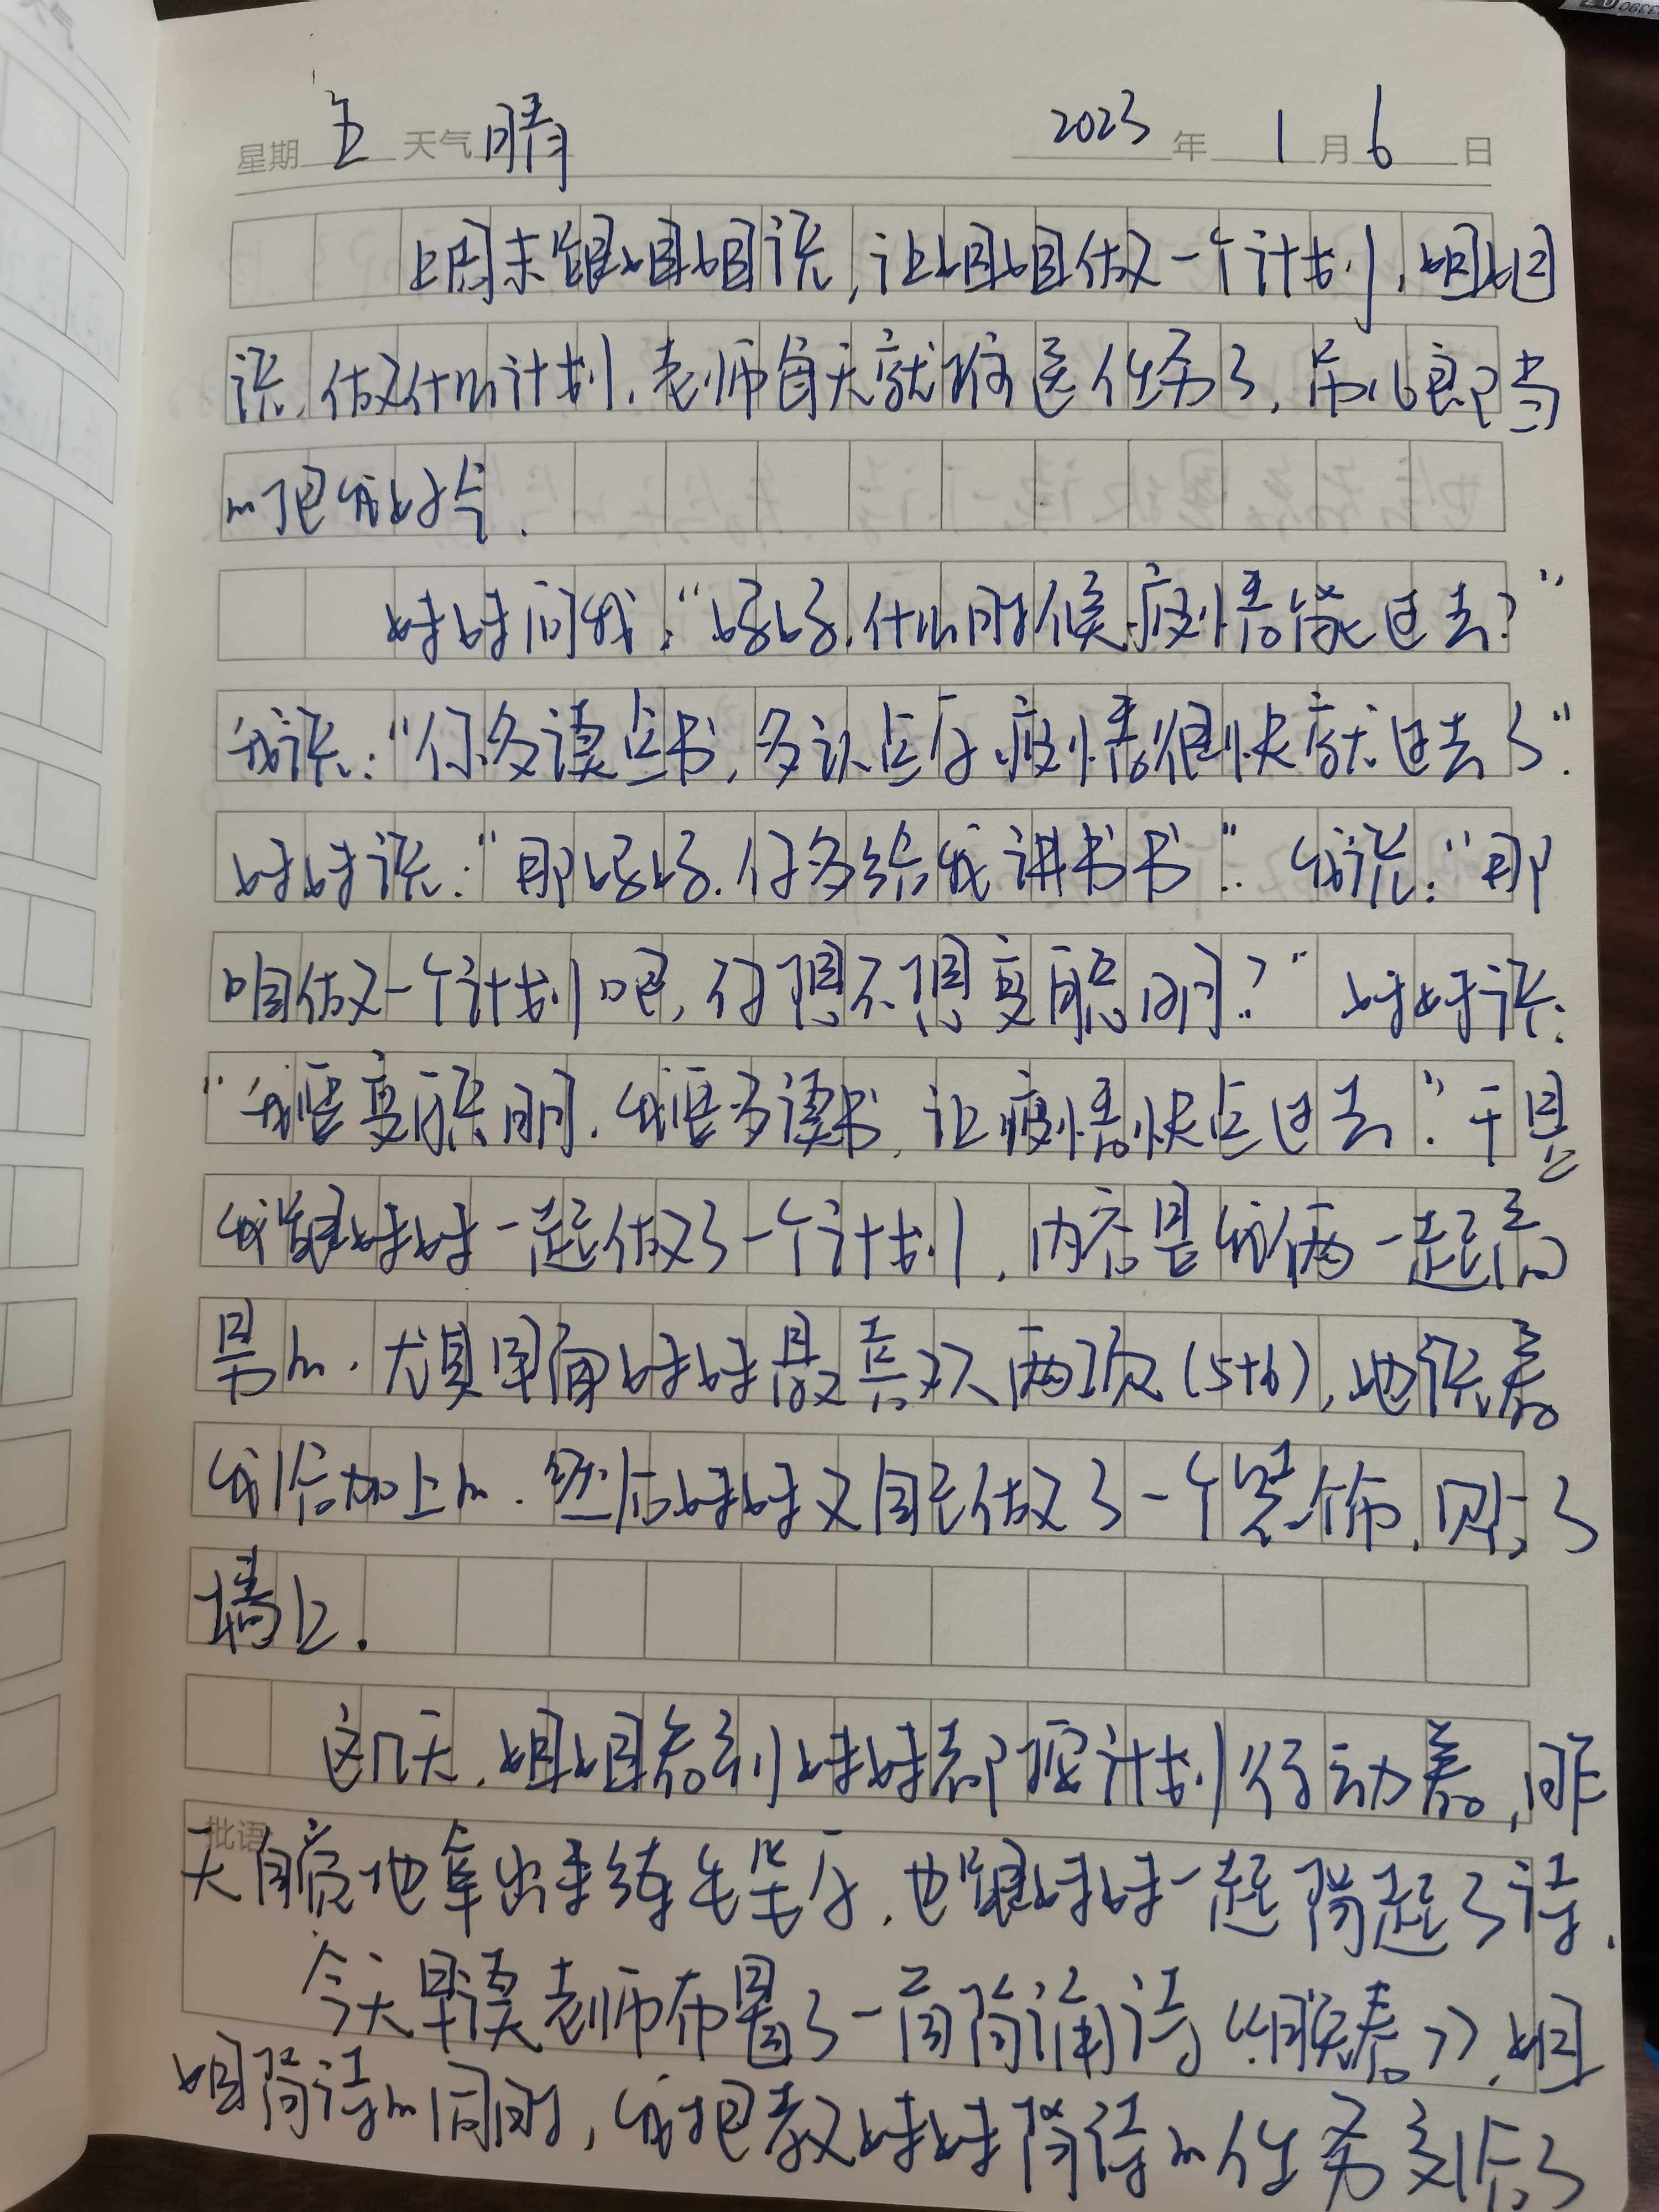 星期 五 天气 晴 2023 年 1 月 6 日
上周末跟姐姐说,让姐姐做一个计划,姐姐
说,做什么计划,老师每天就够多任务了,吊儿郎当
的把我好气.
妹妹问我:“妈妈,什么时候疫情能过去?”
我说:“你多读点书,多认点字,疫情很快就过去了”.
妹妹说:“那妈妈,你多给我讲书书”.我说:“那
咱做一个计划吧,你想不想变聪明?”妹妹说:
“我要变聪明.我要多读书,让疫情快点过去”.于是
我跟妹妹一起做了一个计划,内容是我俩一起商
量的.尤其里面妹妹最喜欢两项(5+6),她说着
我给加上的.然后妹妹又自己做了一个装饰,贴了
墙上.
这几天,姐姐看到妹妹都按计划行动着,昨
批语
天自觉地拿出来练毛笔字,也跟妹妹一起背起了诗.
今天早读老师布置了一首背诵诗《惠崇春》,姐
姐背诗的同时,我把教妹妹背诗的任务交给了